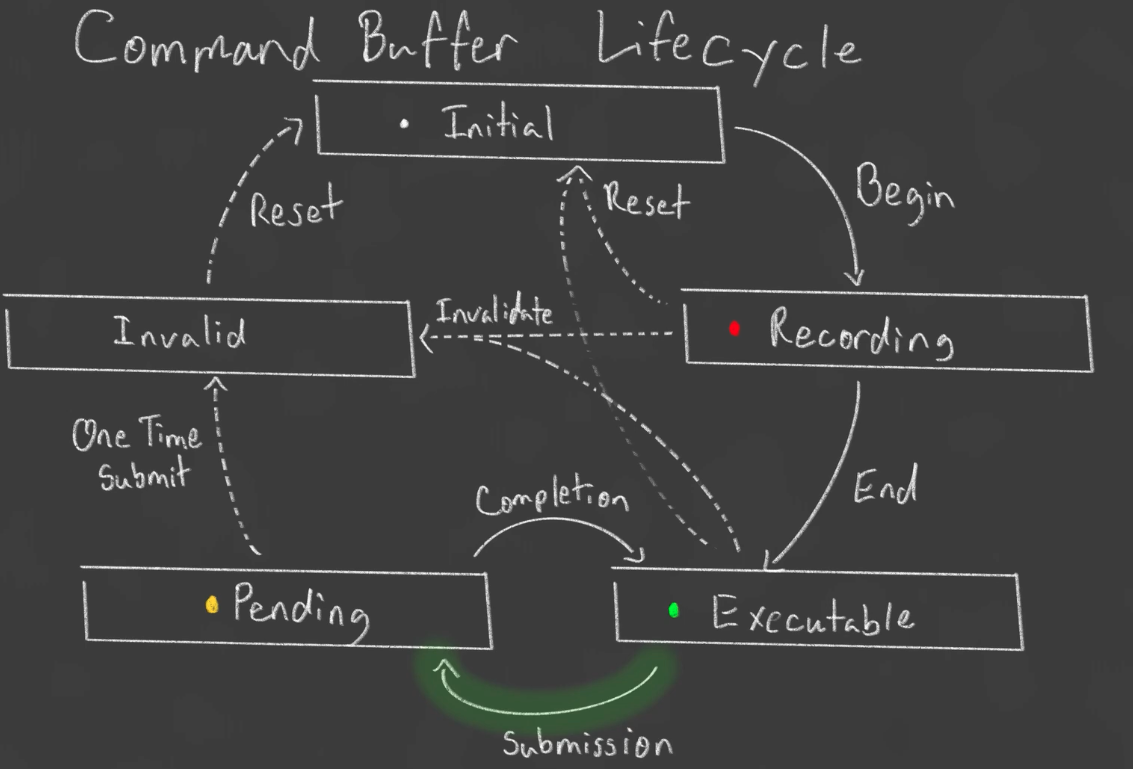 Command Buffer Lifecycle
Initial
Begin
Reset
Reset
Invalidate
Invalid
Recording
One Time
Submit
Completion
End
Pending
Executable
Submission